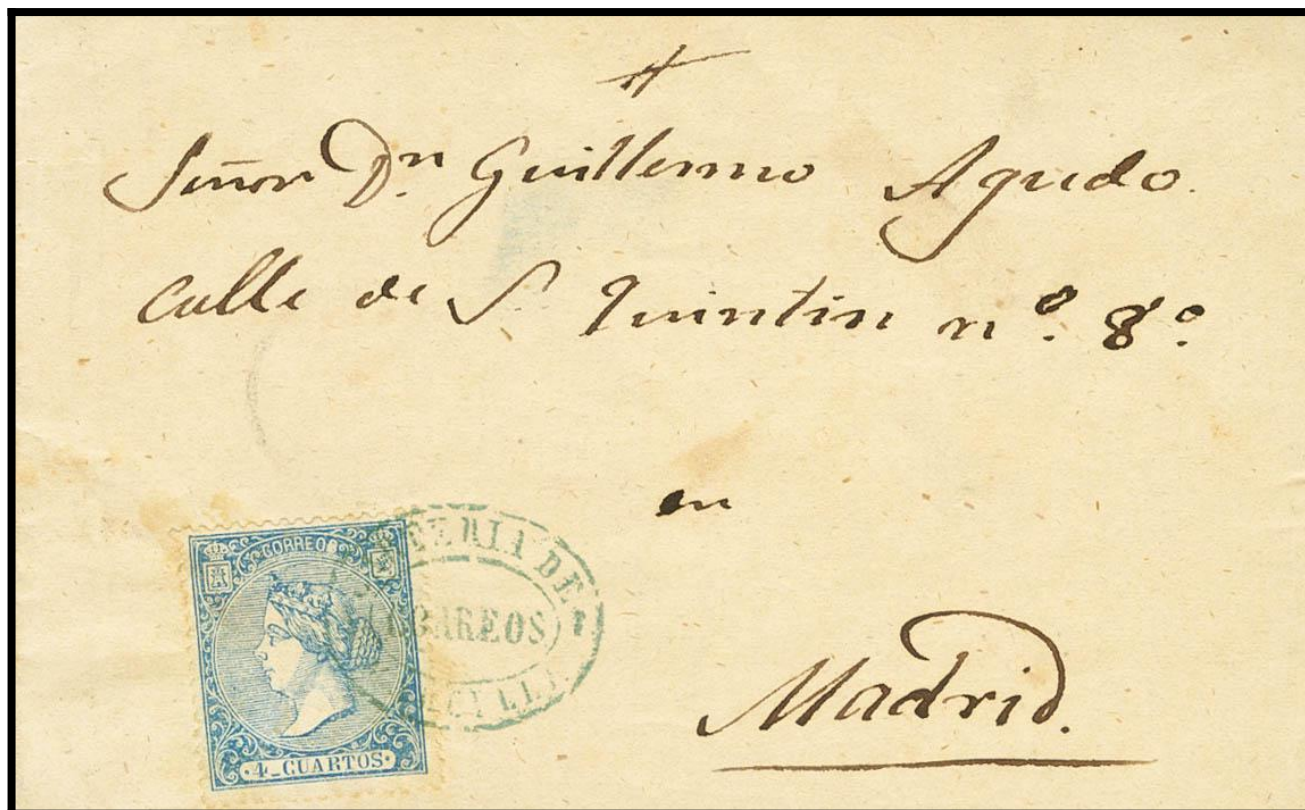 Señor Dn. Guillermo Agudo.
Calle de S. Quintin nº. 8º.
en
Madrid.
CORREOS
4_CUARTOS
DE
CORREOS